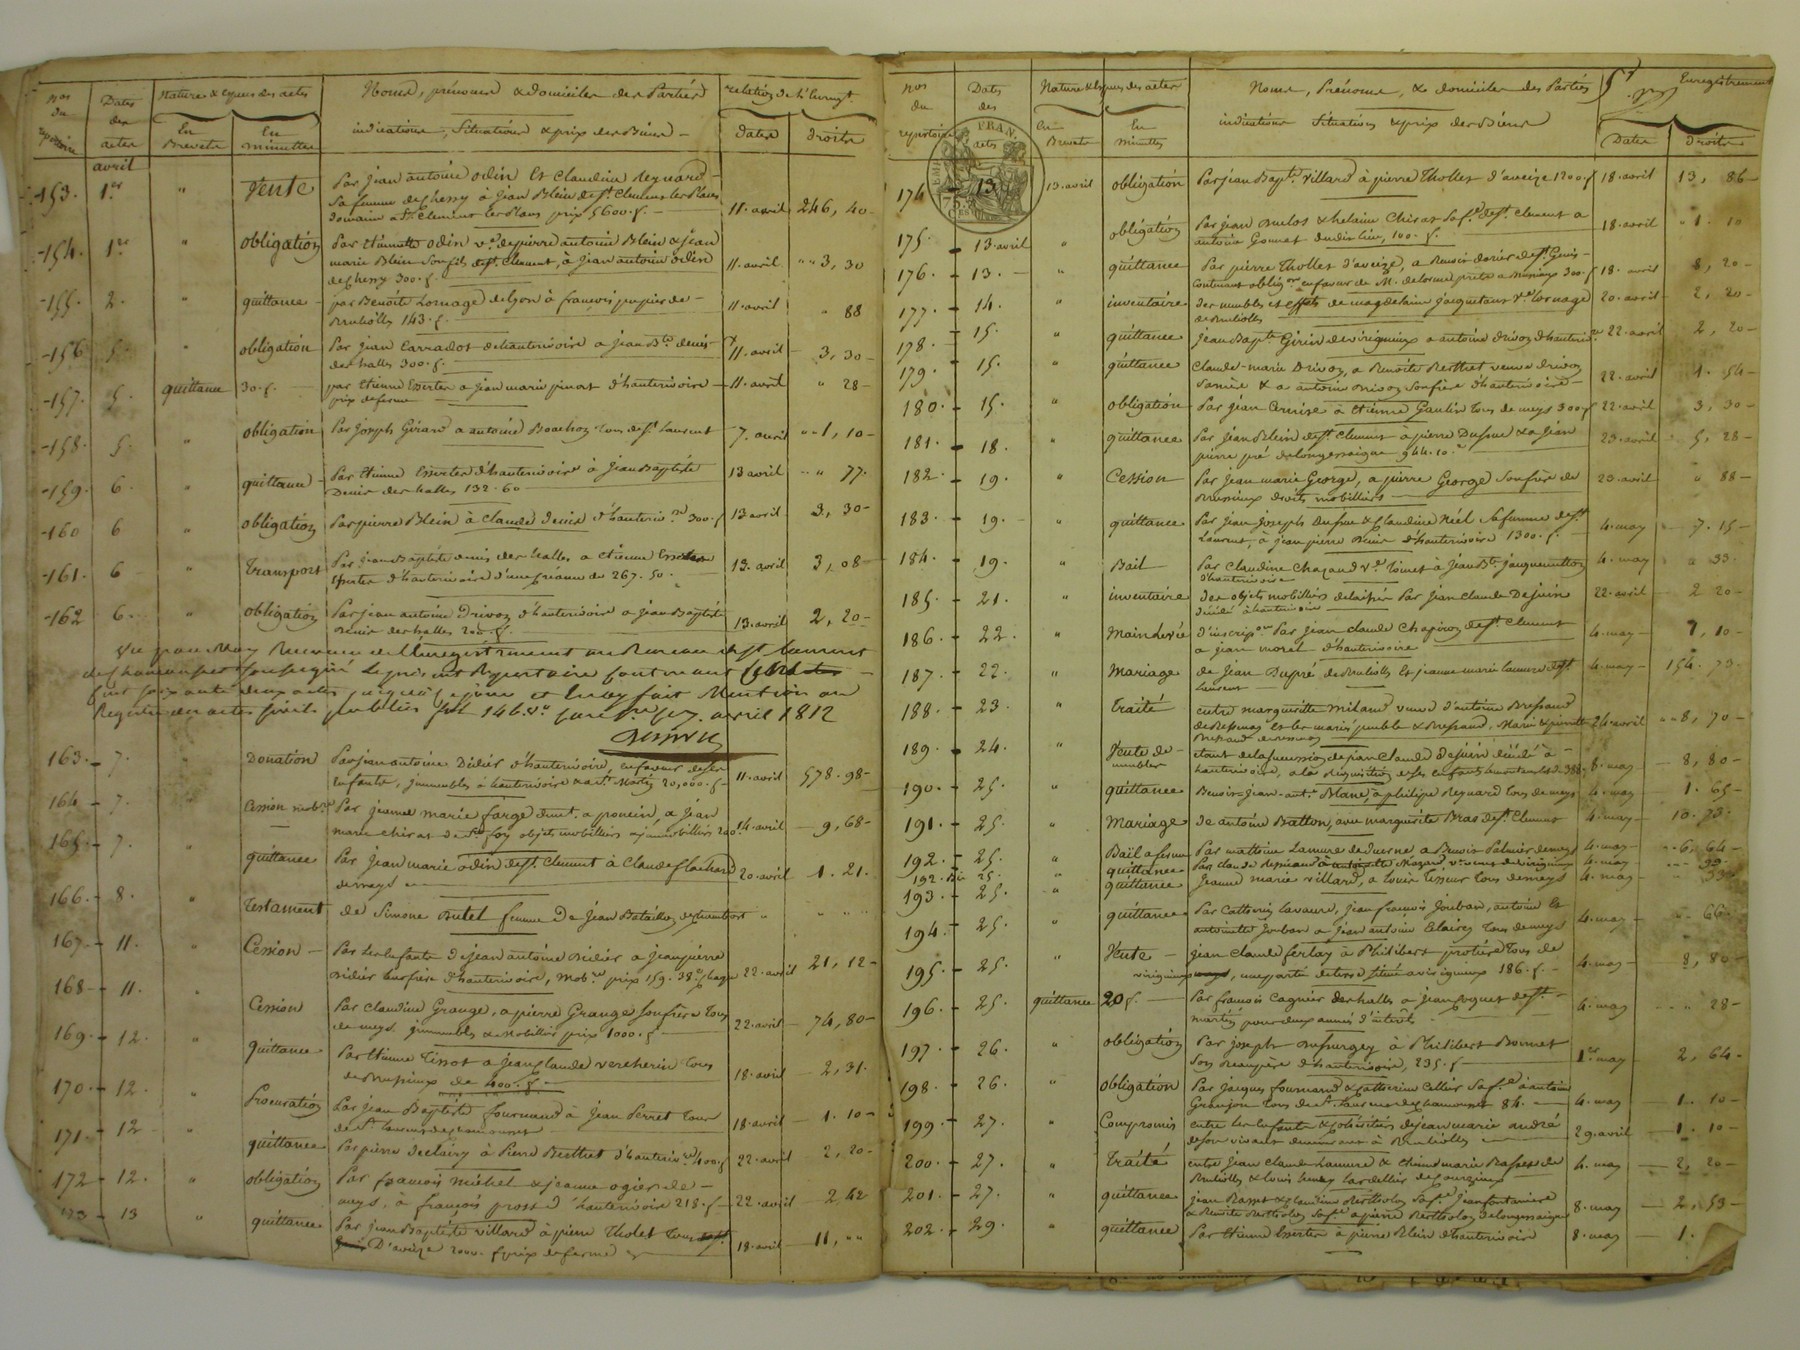 Nos du repertoire
Dates des actes
Nature & espece des actes
En Brevets
En minuttes
Noms, prénoms & domiciles des Parties
indications, Situations & prix des Biens
relation de l'Enregt.
Dates
droits
avril
153. 1er " Vente Par Jean antoine odin et Claudine Reynard
sa femme de chessy à Jean Blein de St. Clement les Places
Domaine a St. Clement les Places prix 5600. f. 11. avril 246, 40
154. 1er " obligation Par odin ve. de pierre antoine Blein & jean
marie Blein son fils de St. Clement, à Jean antoine odin
de chessy 300. f. 11. avril 3, 30
155. 2. " quittance par Benoît Lornage de lyon à françois pupier de
Brulliolles 143. f. 11. avril " 88
156 5. " obligation Par Jean Carradot d'hauterivoire a Jean Bte. denis
des halles 300. f. 11. avril 3, 30
157. 5. quittance 30. f. par Etienne Esserter a Jean marie d'hauterivoire 11. avril " 28
prix de ferme
158. 5. " obligation Par Joseph Girard a antoine tous de St. Laurent 7. avril 1, 10
159. 6. " quittance Par Etienne Esserter d'hauterivoire à Jean Baptiste
Denis des halles 132. 60 13 avril " 77.
160 6 " obligation Par pierre Blein à Claude Denis d'hauteriv.re 300. f 13 avril 3, 30
161. 6 " Transport Par Jean Baptiste denis des halles a etienne
Esserter d'hauterivoire d'une créance de 267. 50. 13. avril 3, 08
162 6. " obligation Par jean antoine Drivon d'hauterivoire a Jean Baptiste
Denis des halles 200. f. 13. avril 2, 20
Vu par Moy Receveur de l'Enregistrement au Bureau de St. Laurent
de chamousset soussigné le présent Repertoire contenant
cent soixante deux actes jusqu'à ce jour et en ay fait Mention au
Registre des actes civils publics fol. 146. vo. ce 7. avril 1812
163. 7. " Donation Par jean antoine Didier d'hauterivoire, en faveur de ses
enfants, immeubles à hauterivoire & a St. Martin 20,000. f. 11. avril 578. 98
164 7. " Cession mob.re Par jeanne marie farge demt. a poncin, a Jean
marie chirat de Ste. foy objets mobilliers & immobilliers 200. 14. avril 9, 68
165. 7. " quittance Par Jean marie odin de St. Clement à Claude flachard
de meys 20. avril 1. 21.
166. 8. " Testament de Simone Butel femme de Jean Bataillon " "
167. 11. " Cession Par les enfants de jean antoine Didier a Jean pierre
Didier leur frère d'hauterivoire, mob.re prix 159. 38. chaque 22. avril 21, 12
168 11. " Cession Par Claudine Grange, a pierre Grange son frère tous
de meys immeubles & mobillier prix 1000. f. 22. avril 74, 80
169. 12. " quittance Par Etienne Tissot a Jean Claude vercherin tous
de Brussieux de 400. f. 18. avril 2, 31.
170. 12. " Procuration Par Jean Baptiste fournand à Jean Perret tous
de St. Laurent de chamousset 18. avril 1. 10
171. 12 " quittance Par pierre declairy à Pierre Berthet d'hauteriv.re 400. f 22. avril 2, 20
172 12. " obligation Par françois michel & jeanne ogier de
meys, à françois prost d'hauterivoire 218. f 22. avril 2, 42
173 13 " quittance Par Jean Baptiste villard à pierre Thollet tous
D'aveize 2000. f prix de ferme 18. avril 11, ""
Nos du repertoire
Dates des actes
Nature & espece des actes
En Brevets
En minuttes
Noms, Prénoms, & domiciles des Parties
indications Situations & prix des Biens
Enregistrement
Dates
droits
FRAN.
174 13. 13. avril obligation Par jean Bapte. villard a pierre Thollet d'aveize 1200. f 18. avril 13, 86
175. 13 avril " obligation Par jean & helaine Chirat sa fe. de St. Clement a
antoine Gonnet dudit lieu, 100. f. 18. avril 1. 10
176. 13. " quittance Par pierre Thollet d'aveize, a Benoit de St. Genis
contenant obligon en faveur de M. delorme prêtre a Brussieux 300. f 18. avril 8, 20
177. 14. " inventaire des meubles et effets de magdelaine jacquetant ve. Lornage
de Brulliolles 20. avril 2, 20
178. 15. " quittance jean Bapte. Girin de virigneux a antoine drivon d'hauteriv.re 22. avril 2, 20
179. 15. " quittance Claude-marie Drivon, a Benoite Berthet veuve drivon
sa mère & a antoine Drivon son frère d'hauterivoire 22. avril 1. 54
180. 15. " obligation Par jean à Etienne Gaulin tous de meys 300. f 22. avril 3, 30
181. 18. " quittance Par Jean Blein de St. Clement à pierre Dufour & a Jean
pierre pré de longessaigne 944. 10. 23. avril 5, 28
182. 19. " Cession Par Jean marie George, a pierre George son frère de
Brussieux droits mobilliers 20. avril " 88
183. 19. " quittance Par jean joseph Dufour & Claudine Néel sa femme de St.
Laurent, à jean pierre Denis d'hauterivoire 1300. f. 4. may 7. 15
184. 19. " Bail Par Claudine Chazaud ve. Toinet à Jean Bte. jacquemetton
d'hauterivoire 4. may " 33.
185. 21. " inventaire des objets mobilliers delaissés Par Jean Claude Dejuin
décédé à hauterivoire 22. avril 2 20
186. 22. " Main Levée d'inscripon Par jean claude Chapiron de St. Clement
a jean morel d'hauterivoire 4. may 1, 10
187. 22. " Mariage de Jean Dupré de Brulliolles et jeanne marie Lamure de St.
Laurent 4. may 154. 73.
188. 23. " Traité entre marguerite Miland veuve d'antoine Bressand
26. avril 8, 70
189. 24. " Vente de meubles etant de la succession de jean Claude Dejuin décédé à
hauterivoire, a la requisition de ses enfants 8. may 8, 80
190. 25. " quittance Benoit-Jean-ant.e Blanc, à philipe Reynard tous de meys 4. may 1. 65
191. 25. " Mariage de antoine Batton, avec marguerite Bras de St. Clement 4. may 10. 73.
192. 25. " Bail a ferme Par mathieu Lamure de duerne a Benoit Palmier de meys 4. may 6, 64
192. bis 25. " quittance Par claude à veuve de virigneux 4. may 99.
193. 25. " quittance Jeanne marie villard, a Louis Tisseur tous de meys 4. may 33
194. 25. " quittance Par Catherine Lavaure, jean françois Jouban, antoine et
antoinette Jouban a jean antoine Clairet tous de meys 4. may 66.
195. 25. " Vente jean Claude ferlay à Philibert protière tous de
virigneux une partie de terre située a virigneux 186. f. 4. may 8, 80
196. 25. quittance 20 f. Par françois Cagnier des halles a jean de St.
martin pour deux années d'intérêts 4. may " 28
197. 26. " obligation Par joseph Dufurgey à Philibert Bonnet
son Beaupère d'hauterivoire, 235. f. 1er. may 2, 64
198. 26. " obligation Par jacques fournand & catherine Cellier sa fe. a antoine
Granjon tous de St. Laurent de chamousset 84. 4. may 1. 10
199. 27. " Compromis entre les enfants & héritiers de jean marie andré
de son vivant demeurant à Brulliolles 29. avril 1. 10
200. 27. " Traité entre Jean Claude Lamure & marie Basset de
Brulliolles & Louis Lardellier de Courzieux 4. may 2, 20
201. 27. " quittance jean Basset & Claudine Bertholon sa fe. Jean fontanière
& Benoite Bertholon sa fe. a pierre Bertholon de longessaigne 8. may 2, 53
202. 29. " quittance Par Etienne Esserter à pierre Blein d'hauterivoire 8. may 1.